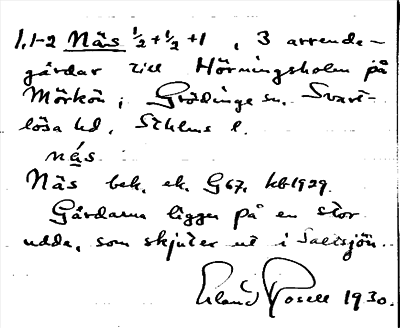 1,1-2 Näs ½+½+1, 3 arrende-
gårdar till Hörningsholm på
Mörkön; Grödinge sn. Svart-
lösa hd, Sthlms l.
nä́s
Näs bek. ek. G67, kb 1929.
Gårdarna ligger på en stor
udde, som skjuter ut i Saltsjön.
Erland Rosell 1930.